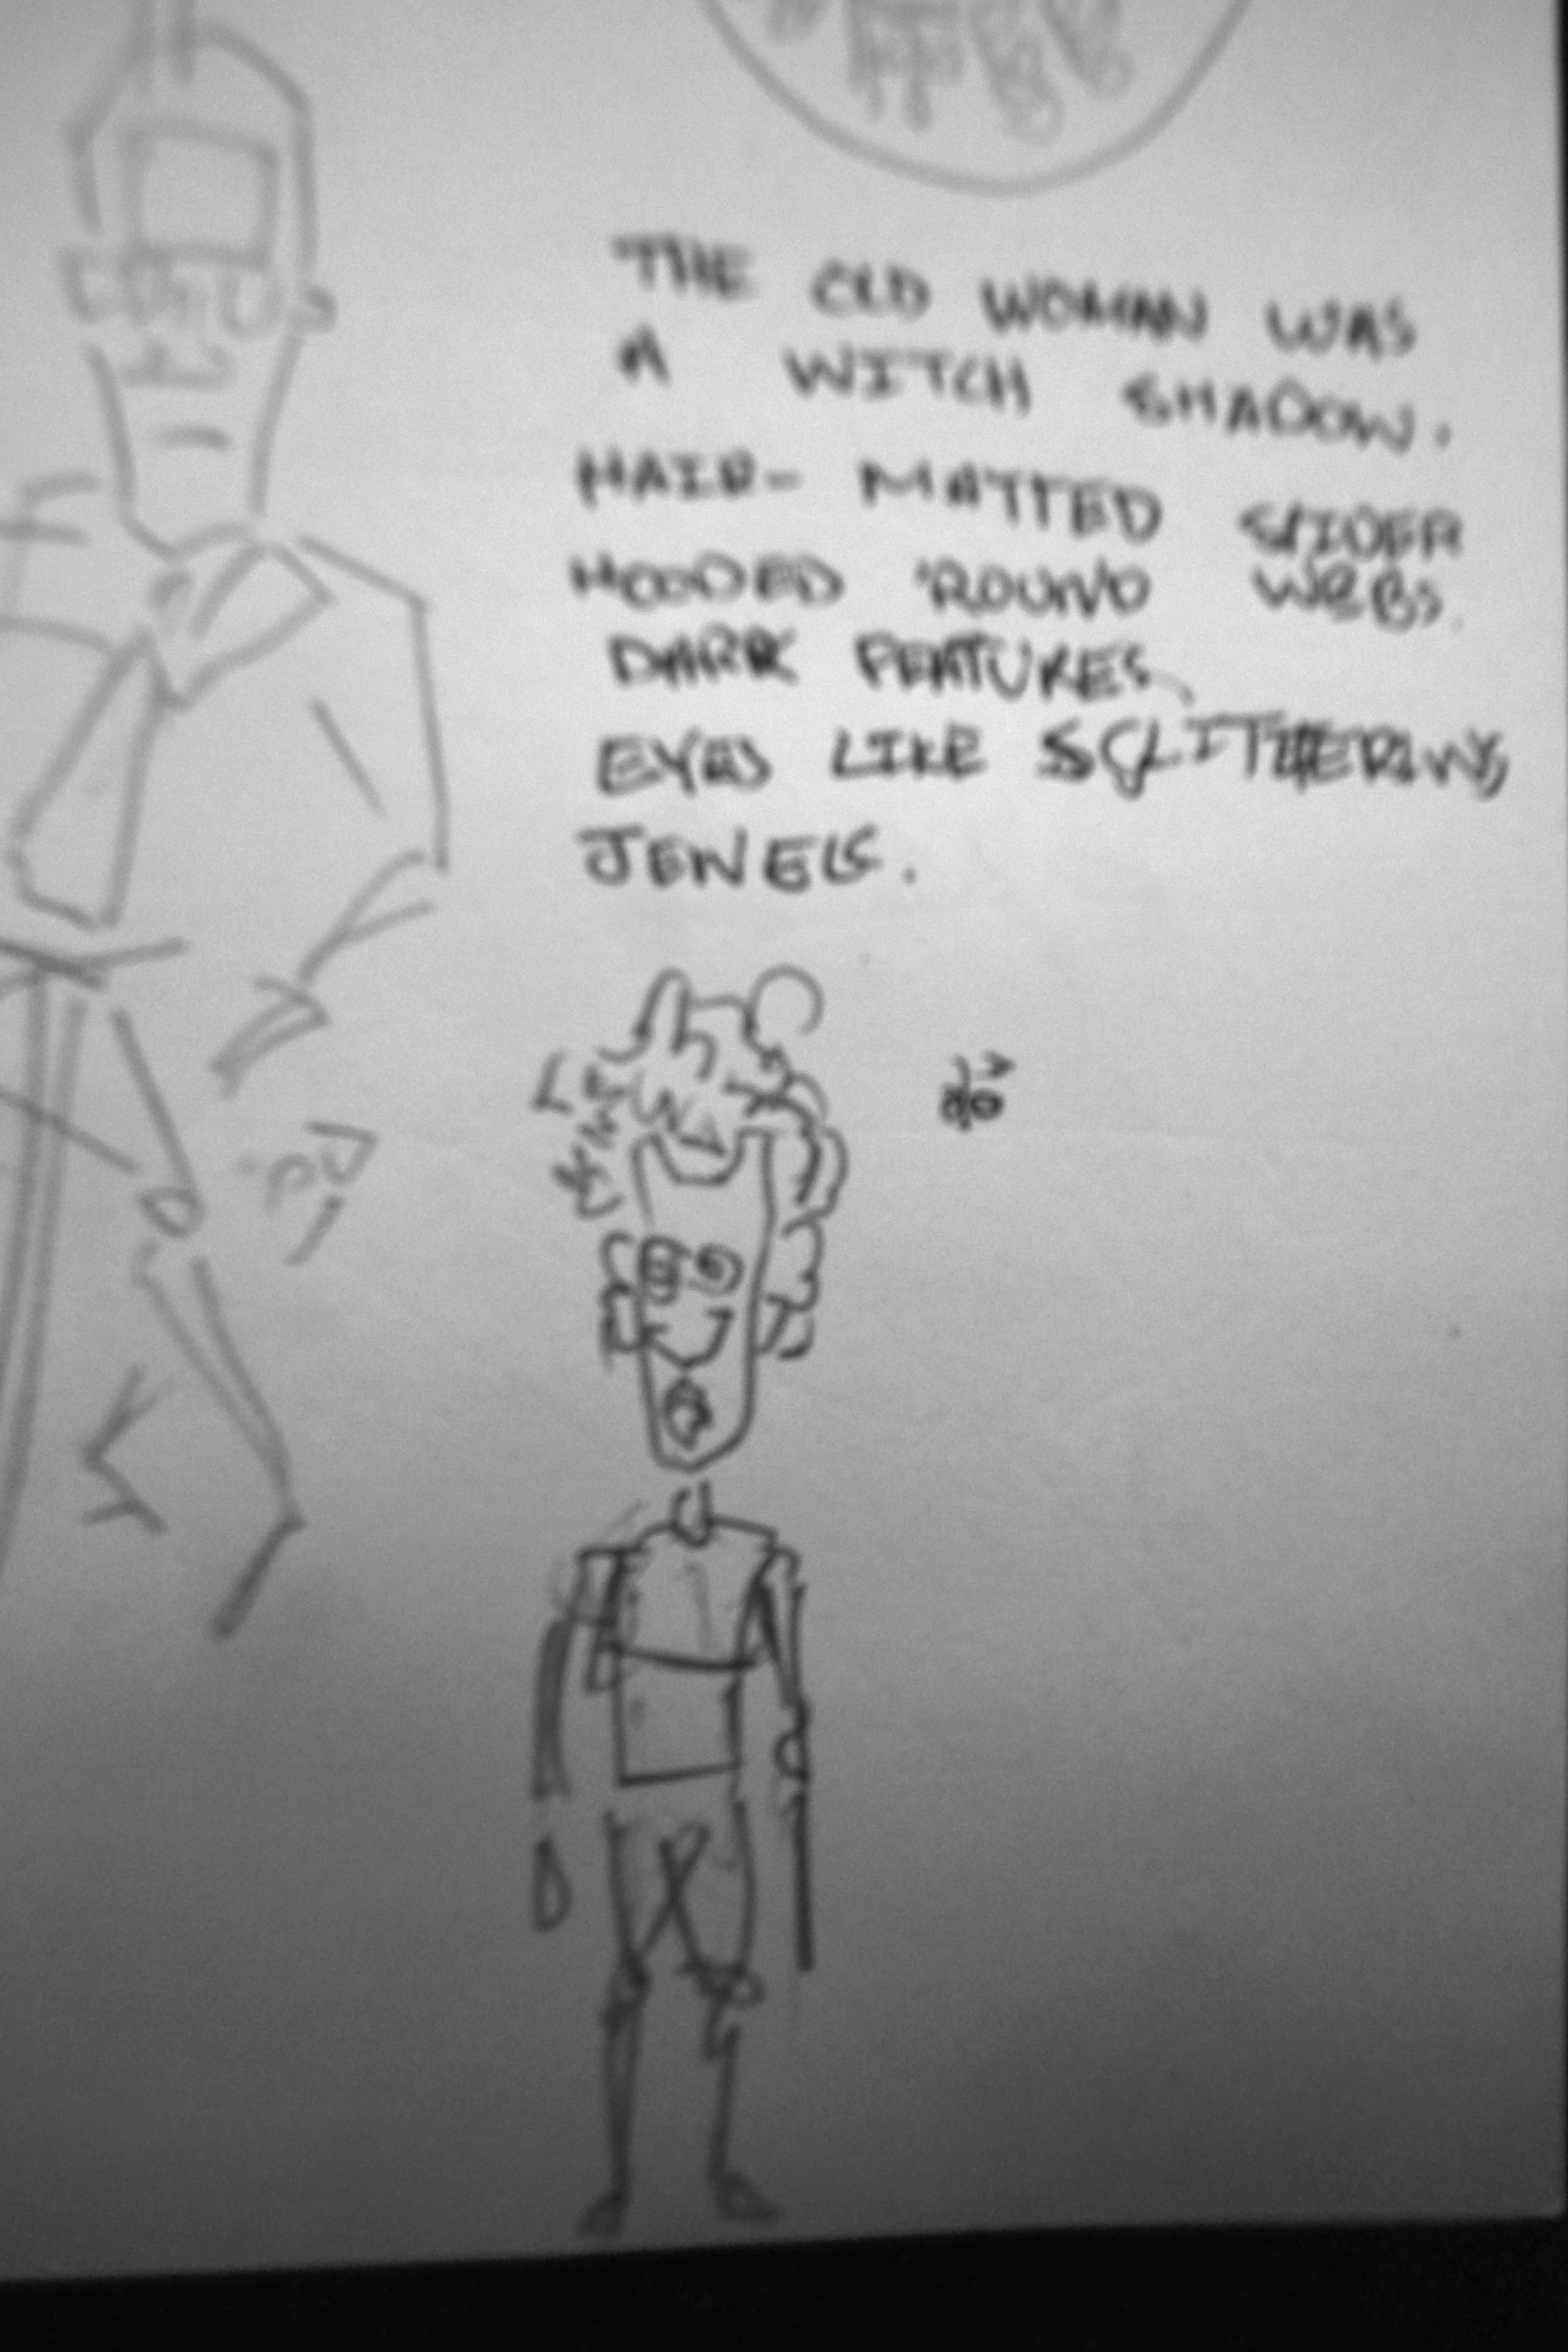 THE OLD WOMAN WAS
A WITCH SHADOW.
HAIR- MATTED SPIDER
HOODED 'ROUND WEBS.
DARK FEATURES,
EYES LIKE SLITHERING
JEWELS.